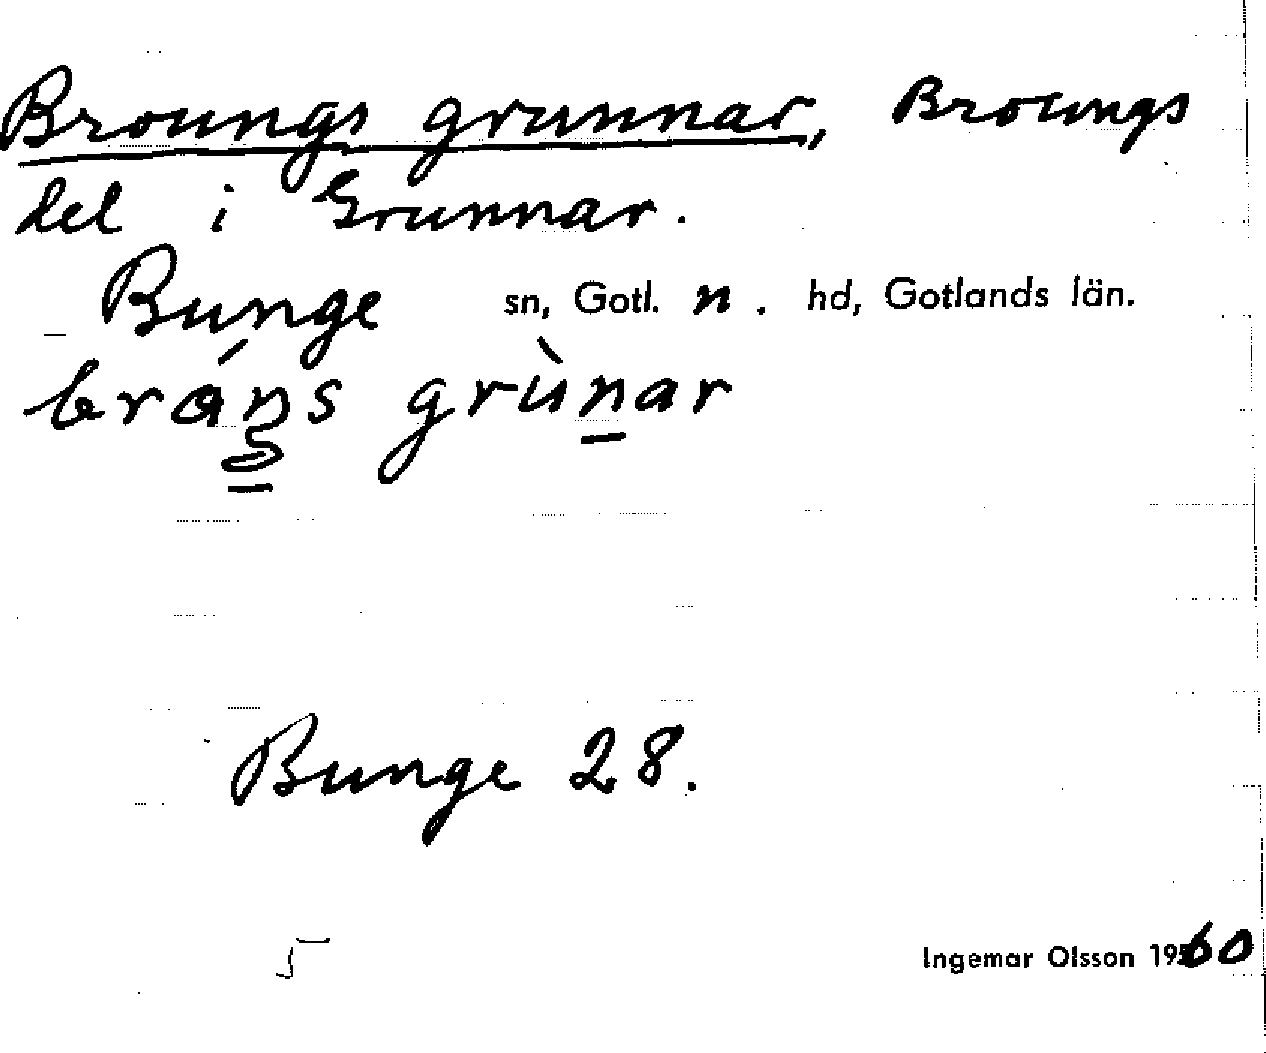 Broungs grunnar, Broungs
del i Grunnar.
Bunge sn, Gotl. n. hd, Gotlands län.
grùnar
Bunge 28.
5
Ingemar Olsson 1960